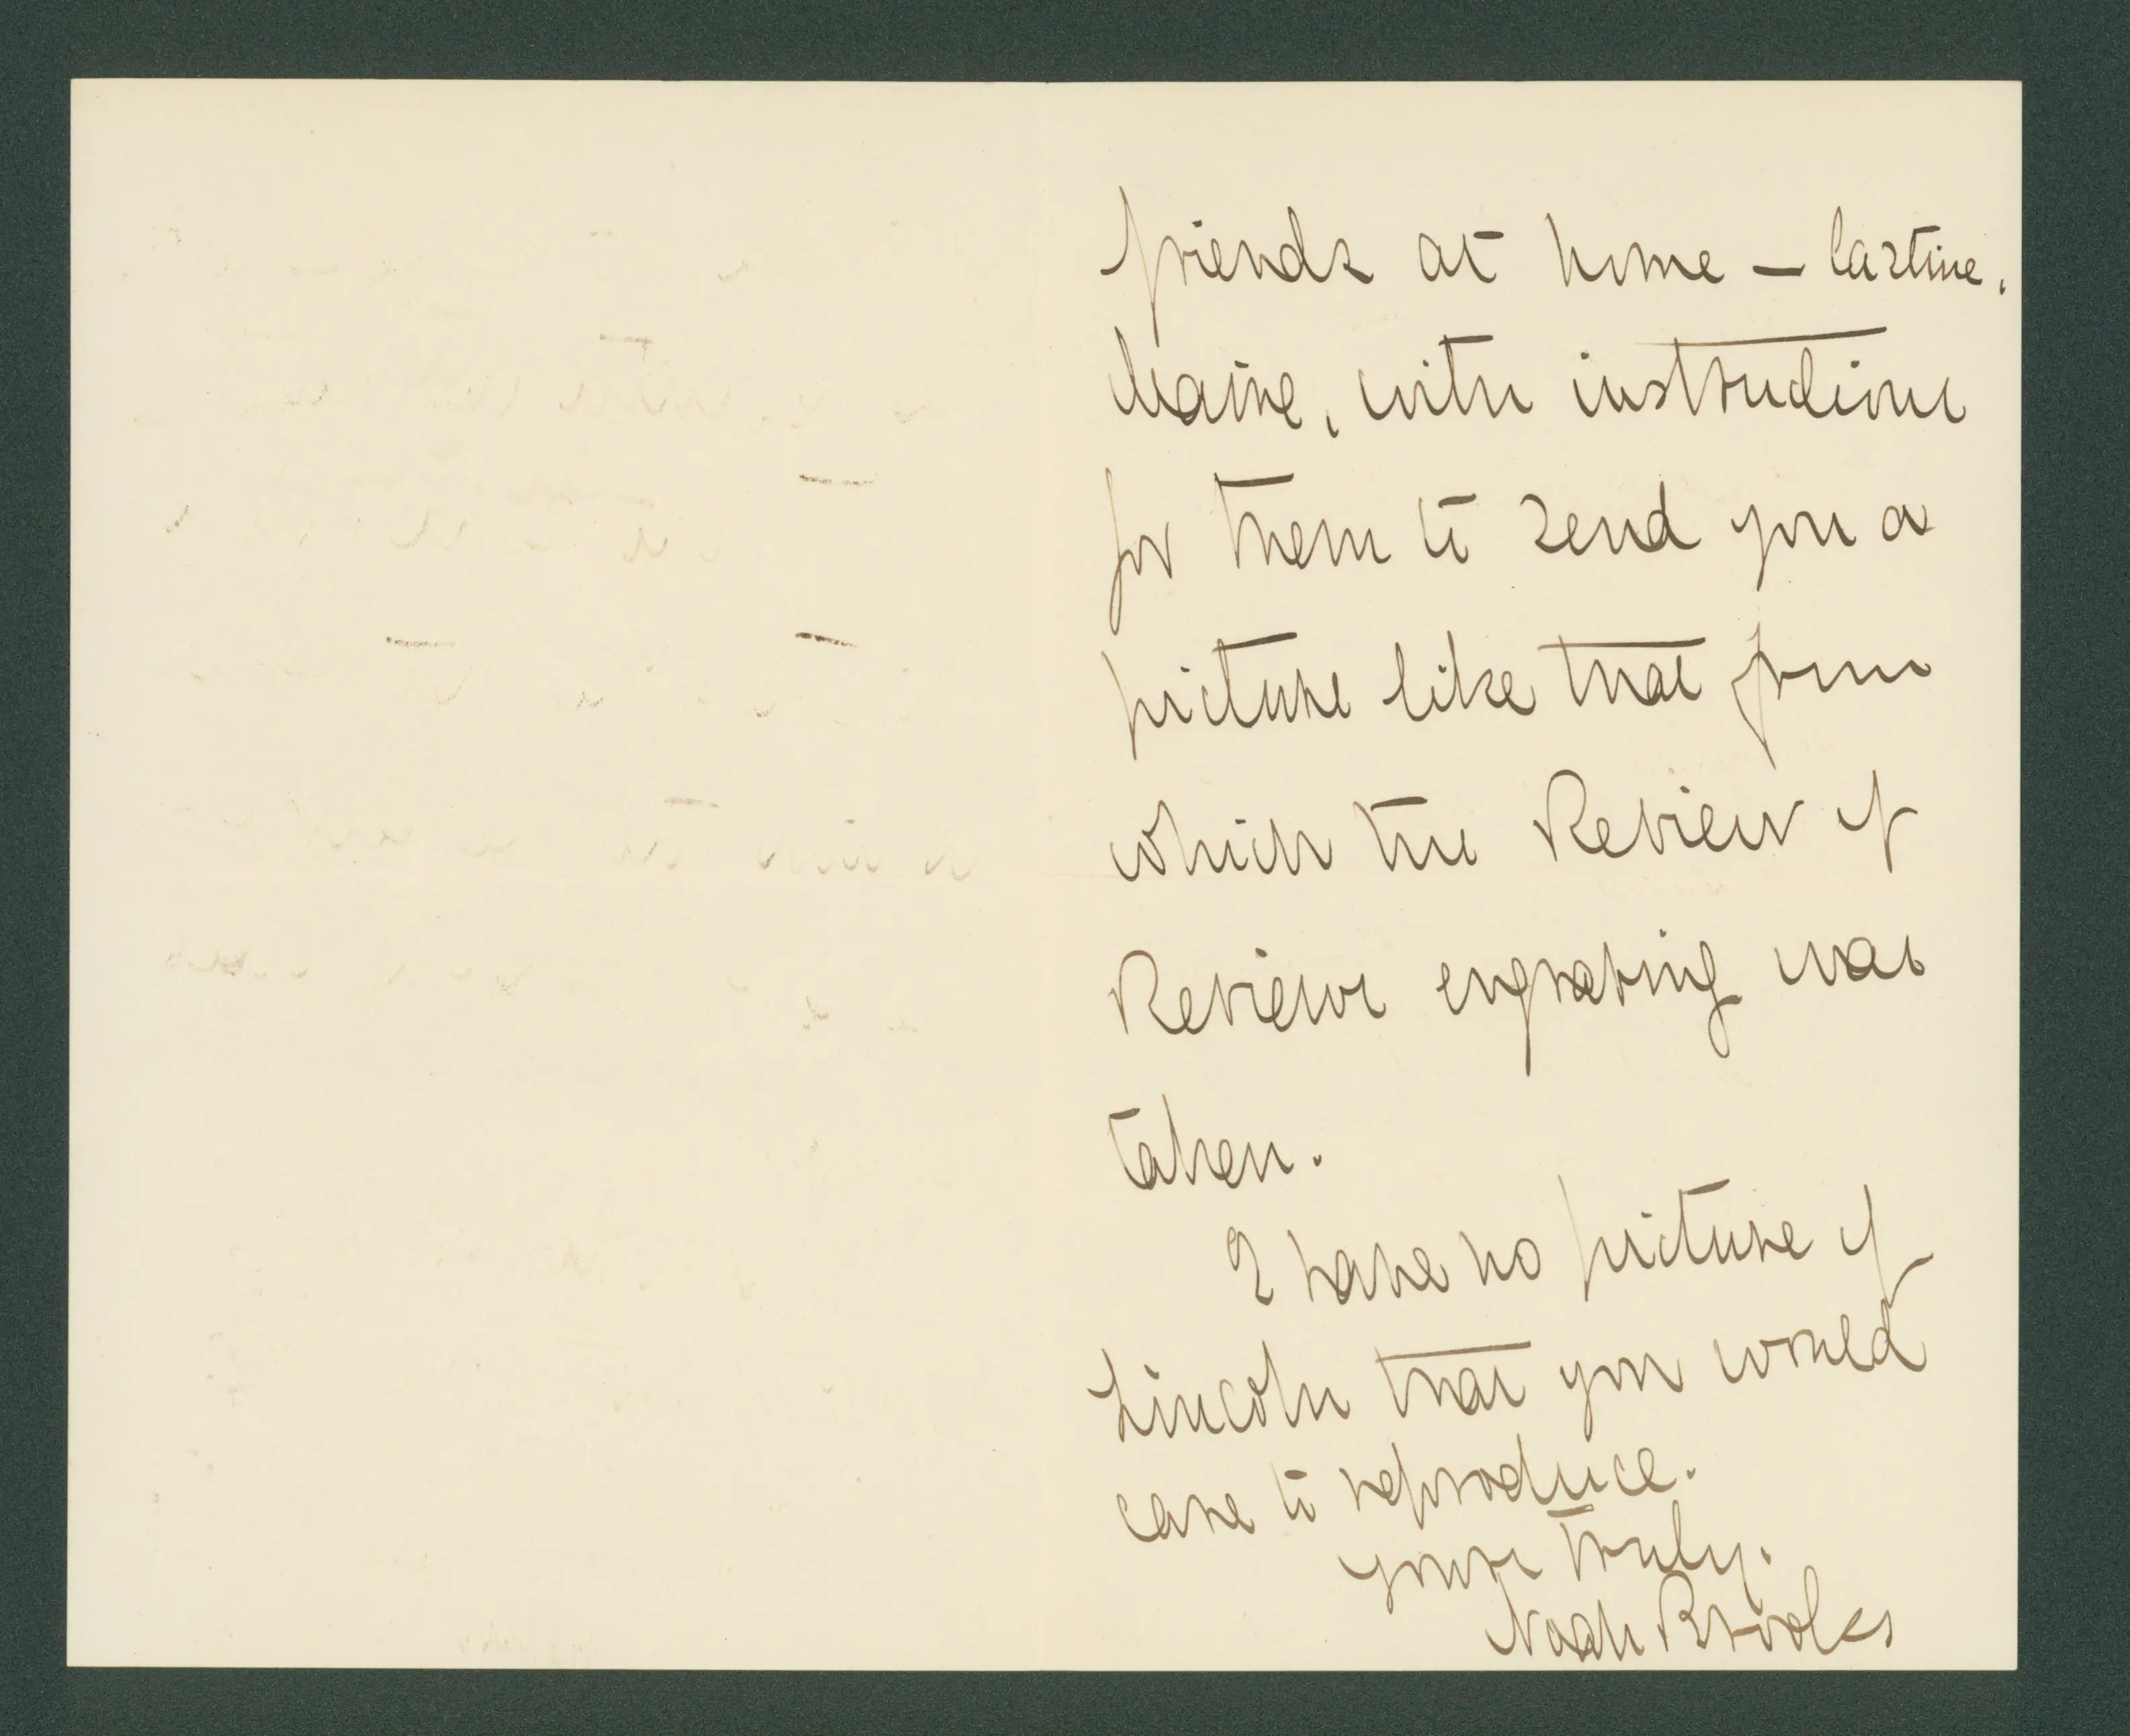 friends at home — Castine,
Maine, with instructions
for them to send you a
picture like that from
which the Review of
Reviews engraving was
taken.
I have no picture of
Lincoln that you would
care to reproduce.
Yours truly.
Noah Brooks